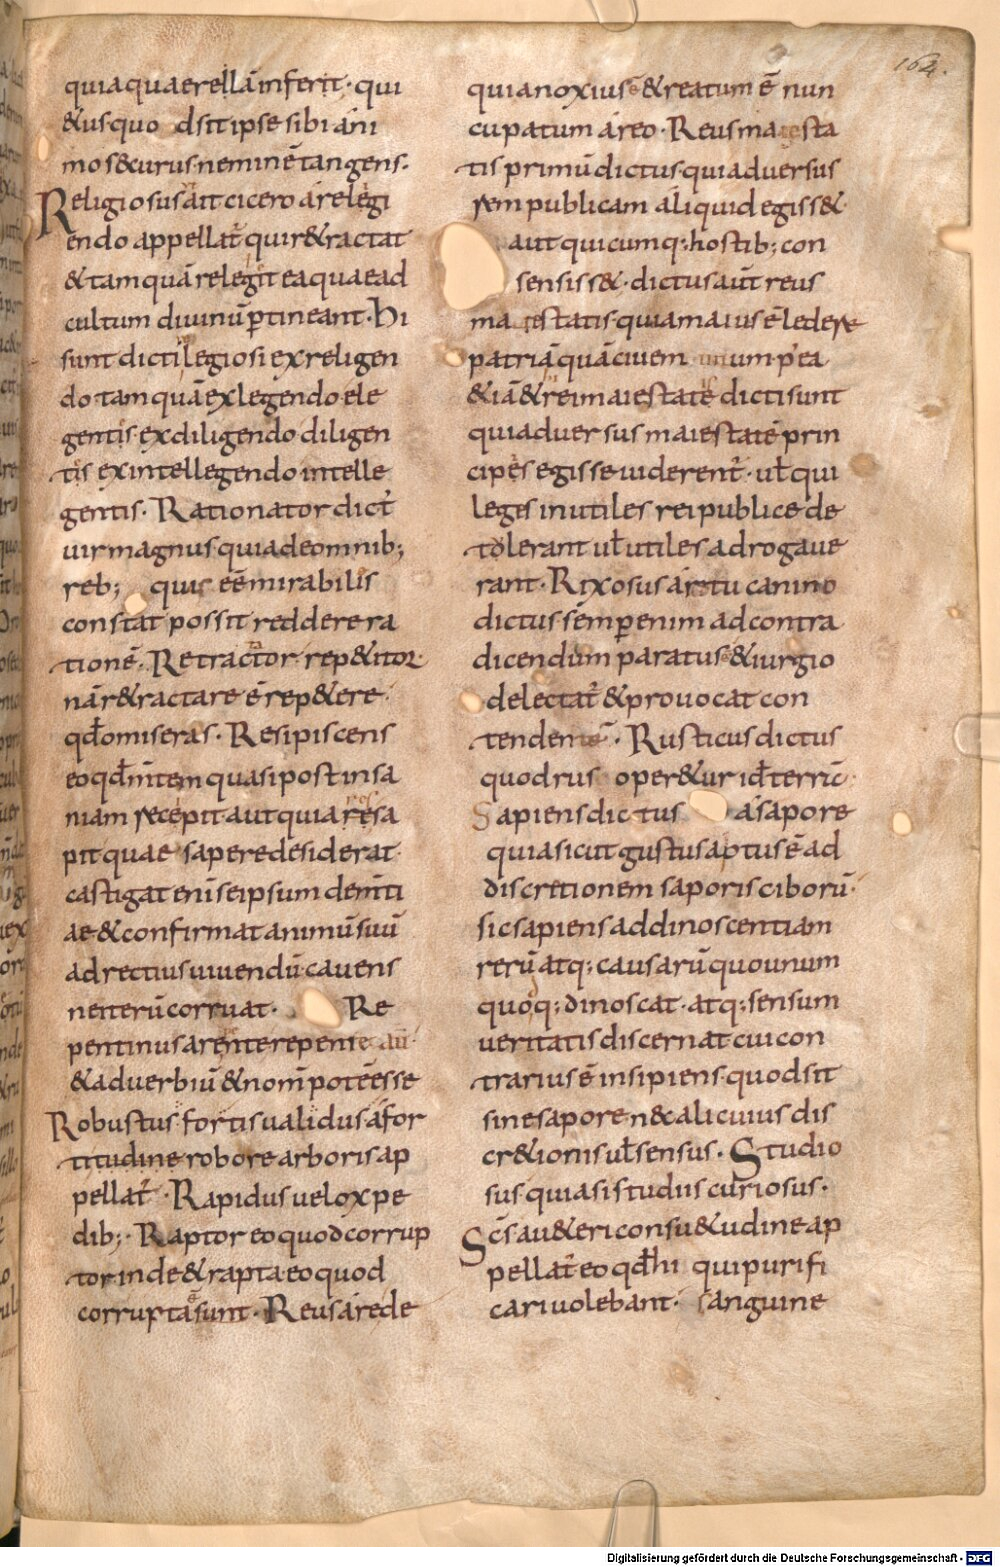 162.
quia quaerellā inferit· qui
&us quo dsit ipse sibi ani
mos&urus neminē tangens·
Religiosus ait cicero a relegi
endo appellat̄ qui r&ractat
& tamquā relegit ea quae ad
cultum diuinū ꝑtineant· Hi
sunt dicti legiosi ex religen
do tamquā ex legendo ele
gentis· ex diligendo diligen
tis ex intellegendo intelle
gentis· Rationator dict̄
uir magnus quia de omnib;
reb; quis eē mirabilis
constat possit reddere ra
tionē· Retractor rep&itor·
nār&ractare ē rep&ere·
qđ omiseras· Resipiscens
eo qđ m̄tem quasi post insa
niam recepit aut quia resa
pit quae sapere desiderat·
castigat enī se ipsum dem̄ti
ae & confirmat animū suū
ad rectius uiuendū cauens
ne iterū corruat· Re
pentinus a rente repente aū·
& aduerbiū & nom̄ potē esse
Robustus fortis ualidus a for
titudine robore arboris ap
pellat̄· Rapidus uelox pe
dib;· Raptor eo quod corrup
tor inde & rapta eo quod
corrupta sunt· Reus a re de
qui anoxius & reatum ē nun
cupatum a reo· Reus maiesta
tis primū dictus qui aduersus
rem publicam aliquid egiss&·
aut quicumq; hostib; con
sensiss&· dictus aūt reus
maiestatis quia maius ē ledere
patriā quā ciuem unum p̄ea
&iā & rei maiestatē dicti sunt
qui aduersus maiestatē prin
cipes egisse uiderent̄· uł qui
leges inutiles rei publice de
tolerant uł utiles adrogaue
rant· Rixosus a rictu canino
dictus semꝑ enim ad contra
dicendum paratus & iurgio
delectat̄ & prouocat con
tendentē· Rusticus dictus
quod rus oper&ur id̄ terrā·
Sapiens dictus a sapore
quia sicut gustus aptus ē ad
discretionem saporis ciborū·
sic sapiens ad dinoscentiam
rerū atq; causarū quo unum
quoq; dinoscat· atq; sensum
ueritatis discernat cui con
trarius ē insipiens· quod sit
sine sapore n& alicuius dis
cr&ionis uł sensus· Studio
sus· quiasi studiis curiosus·
Sc̄s a u&eri consu&udine ap
pellat̄ eo qđ hi qui purifi
cari uolebant· sanguine
Digitalisierung gefördert durch die Deutsche Forschungsgemeinschaft - DFG